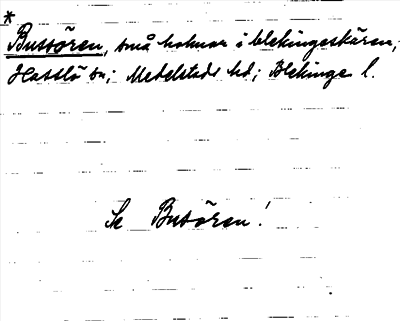 *
Bussören, små holmar i blekingeskären;
Hasslö sn; Medelstads hd; Blekinge l.
Se Busören!